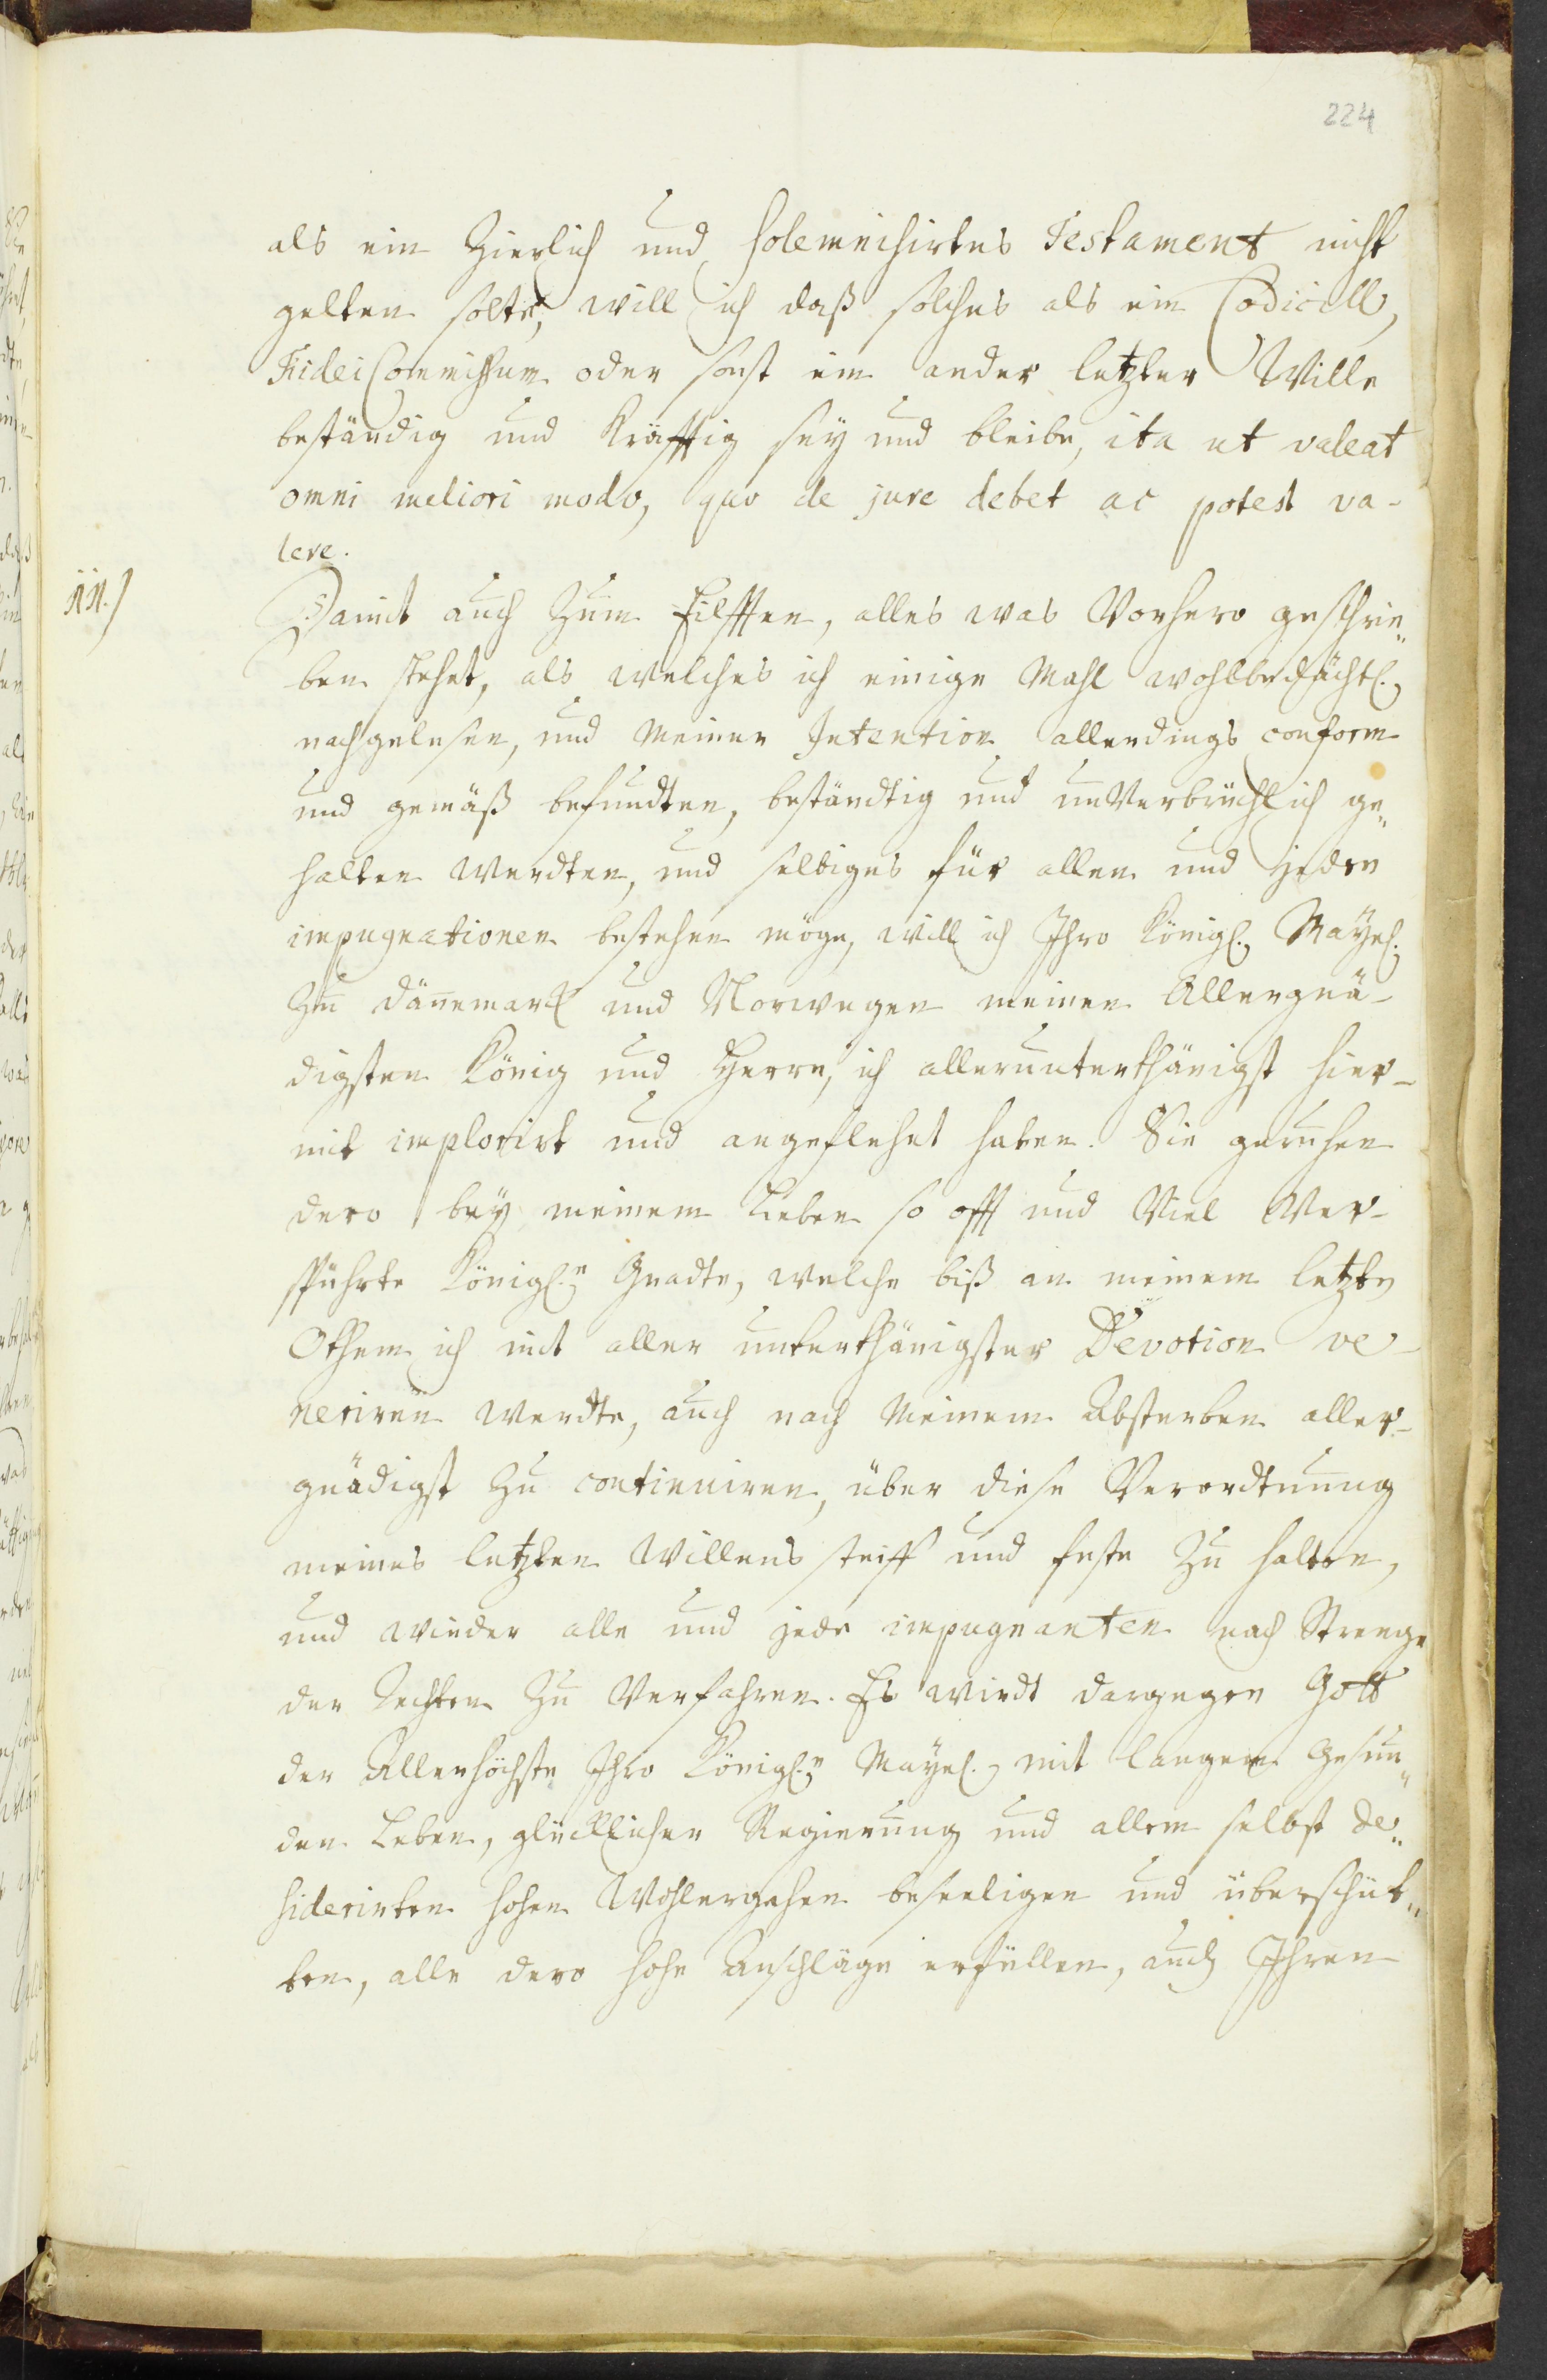 224
als ein Zierlich und solemnisirtes Testament nicht
gelten solte, will ich daß solches als ein Codicill,
FideiCommissum oder sonst ein ander letzter Wille
beständig und kräfftig sey und bleibe, ita ut valeat
omni meliori modo, quo de jure debet ac potest va-
lere.
11.) Damit auch zum Eilfften, alles was Vorhero geschrie„
ben stehet, als welches ich einige Mahl wohlbedächtl.
nachgelesen, und meiner Intention allerdings conform
und gemäß befundten, beständtig und unVerbrüchlich ge„
halten werdten, und selbiges für allen und jeden
impugnationen bestehen möge, will ich Ihro Königl. Mayes.
Zu Dännemark und Norwegen meinen Allergnä-
digsten König und Herrn, ich allerunterthänigst hier-
mit implorirt und angeflehet haben. Sie geruhen
dero bey meinem Leben so offt und Viel Ver-
spührte Königl.e Gnadte, welche biß an meinem letzten
Othem ich mit aller unterthänigster Devotion ve-
neriren werdte, auch nach Meinem Absterben aller-
gnädigst zu continuiren, über diese Verordtnung
meines letzten Willens steiff und feste zu halten,
und wieder alle und jede impugnanten nach Strenge
der Rechten zu Verfahren. Es wirdt dargegen Gott
der Allerhöchste Ihro Königl.e Mayes. mit langem Gesun„
den Leben, glücklicher Regierung und allem selbst de„
siderirten hohen Wohlergehen beseeligen und überschüt„
ten, alle dero hohe Anschläge erfüllen, auch Ihren